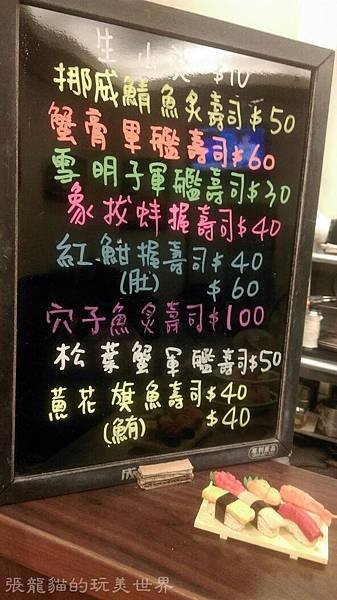 生 $10
挪威鯖魚炙壽司$50
蟹膏軍艦壽司$60
雪明子軍艦壽司$30
象拔蚌握壽司$40
紅魽握壽司$40
(肚) $60
穴子魚炙壽司$100
松葉蟹軍艦壽司$50
蔥花旗魚壽司$40
(鮪) $40
張龍貓的玩美世界